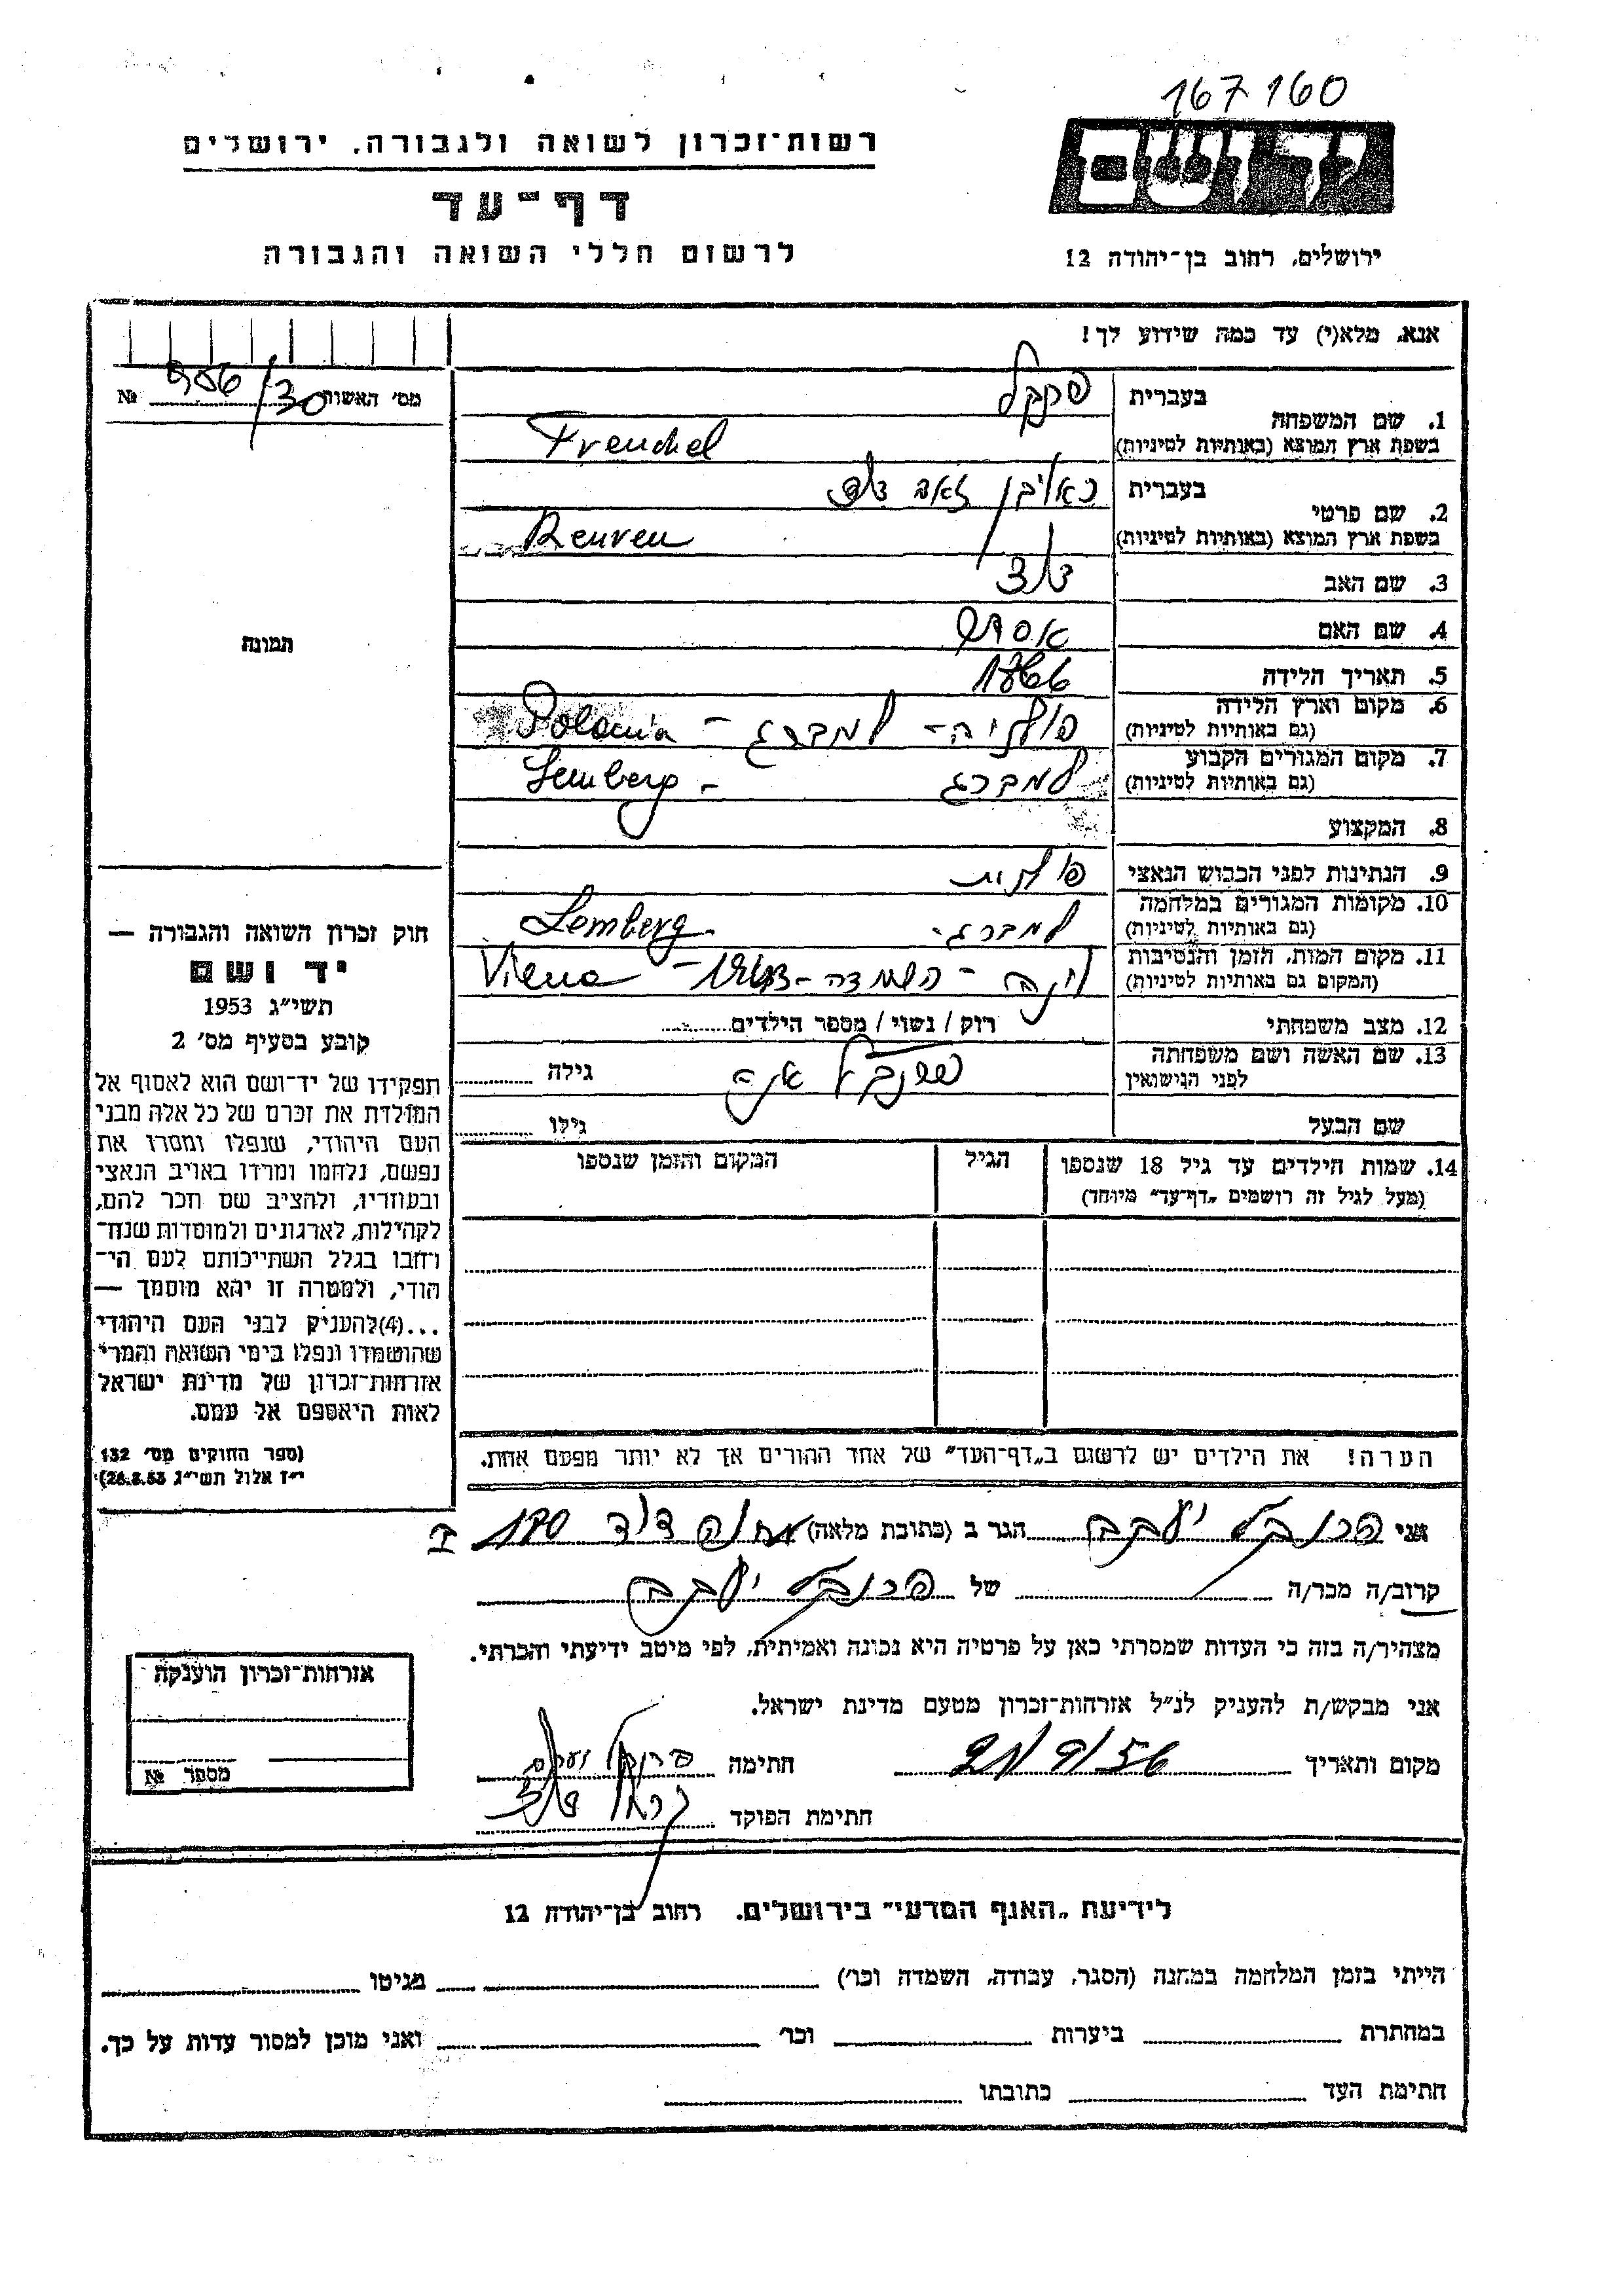 167160
רשות־זכרון לשואה ולגבורה, ירושלים
יד ושם
דף־עד
לרשום חללי השואה והגבורה
ירושלים, רחוב בן־יהודה 12
אנא, מלא(י) עד כמה שידוע לך!
מס' האשות 30 №
1. שם המשפחה
בעברית
בשפת ארץ המוצא (באותיות לטיניות) Frenckel
2. שם פרטי
בעברית ראובן זאב
בשפת ארץ המוצא (באותיות לטיניות) Reuven
3. שם האב דוד
4. שם האם אסתר
5. תאריך הלידה
6. מקום וארץ הלידה
(גם באותיות לטיניות) פולניה - למברג - Polania
7. מקום המגורים הקבוע
(גם באותיות לטיניות) למברג - Lemberg
8. המקצוע
9. הנתינות לפני הכבוש הנאצי פולנית
10. מקומות המגורים במלחמה
(גם באותיות לטיניות) למברג - Lemberg
11. מקום המות, הזמן והנסיבות
(המקום גם באותיות לטיניות) השמדה - 1943 - Viena
12. מצב משפחתי רוק / נשוי / מספר הילדים
13. שם האשה ושם משפחתה
לפני הנישואין
גילה
שם הבעל
גילו
14. שמות הילדים עד גיל 18 שנספו הגיל המקום והזמן שנספו
(מעל לגיל זה רושמים „דף־עד" מיוחד)
הערה! את הילדים יש לרשום ב„דף־העד" של אחד ההורים אך לא יותר מפעם אחת.
תמונה
חוק זכרון השואה והגבורה —
יד ושם
תשי"ג 1953
קובע בסעיף מס' 2
תפקידו של יד־ושם הוא לאסוף אל
המולדת את זכרם של כל אלה מבני
העם היהודי, שנפלו ומסרו את
נפשם, נלחמו ומרדו באויב הנאצי
ובעוזריו, ולהציב שם וזכר להם,
לקהילות, לארגונים ולמוסדות שנח־
רחבו בגלל השתייכותם לעם הי־
הודי, ולמטרה זו יהא מוסמך —
...(4)להעניק לבני העם היהודי
שהושמדו ונפלו בימי השואה והמרי
אזרחות־זכרון של מדינת ישראל
לאות היאספם אל עמם.
(ספר החוקים מס' 132
י"ז אלול תשי"ג 28.8.53)
אני פרנקל יעקב הגר ב (כתובת מלאה) דוד 170
קרוב/ה מכר/ה של פרנקל יעקב
מצהיר/ה בזה כי העדות שמסרתי כאן על פרטיה היא נכונה ואמיתית, לפי מיטב ידיעתי והכרתי.
אני מבקש/ת להעניק לנ"ל אזרחות־זכרון מטעם מדינת ישראל.
מקום ותאריך 21/9/56 חתימה פרנקל יעקב
חתימת הפוקד
אזרחות־זכרון הוענקה
מספר №
לידיעת „האגף המדעי" בירושלים, רחוב בן־יהודה 12
הייתי בזמן המלחמה במחנה (הסגר, עבודה, השמדה וכו') בגיטו
במחתרת ביערות וכו' ואני מוכן למסור עדות על כך.
חתימת העד כתובתו